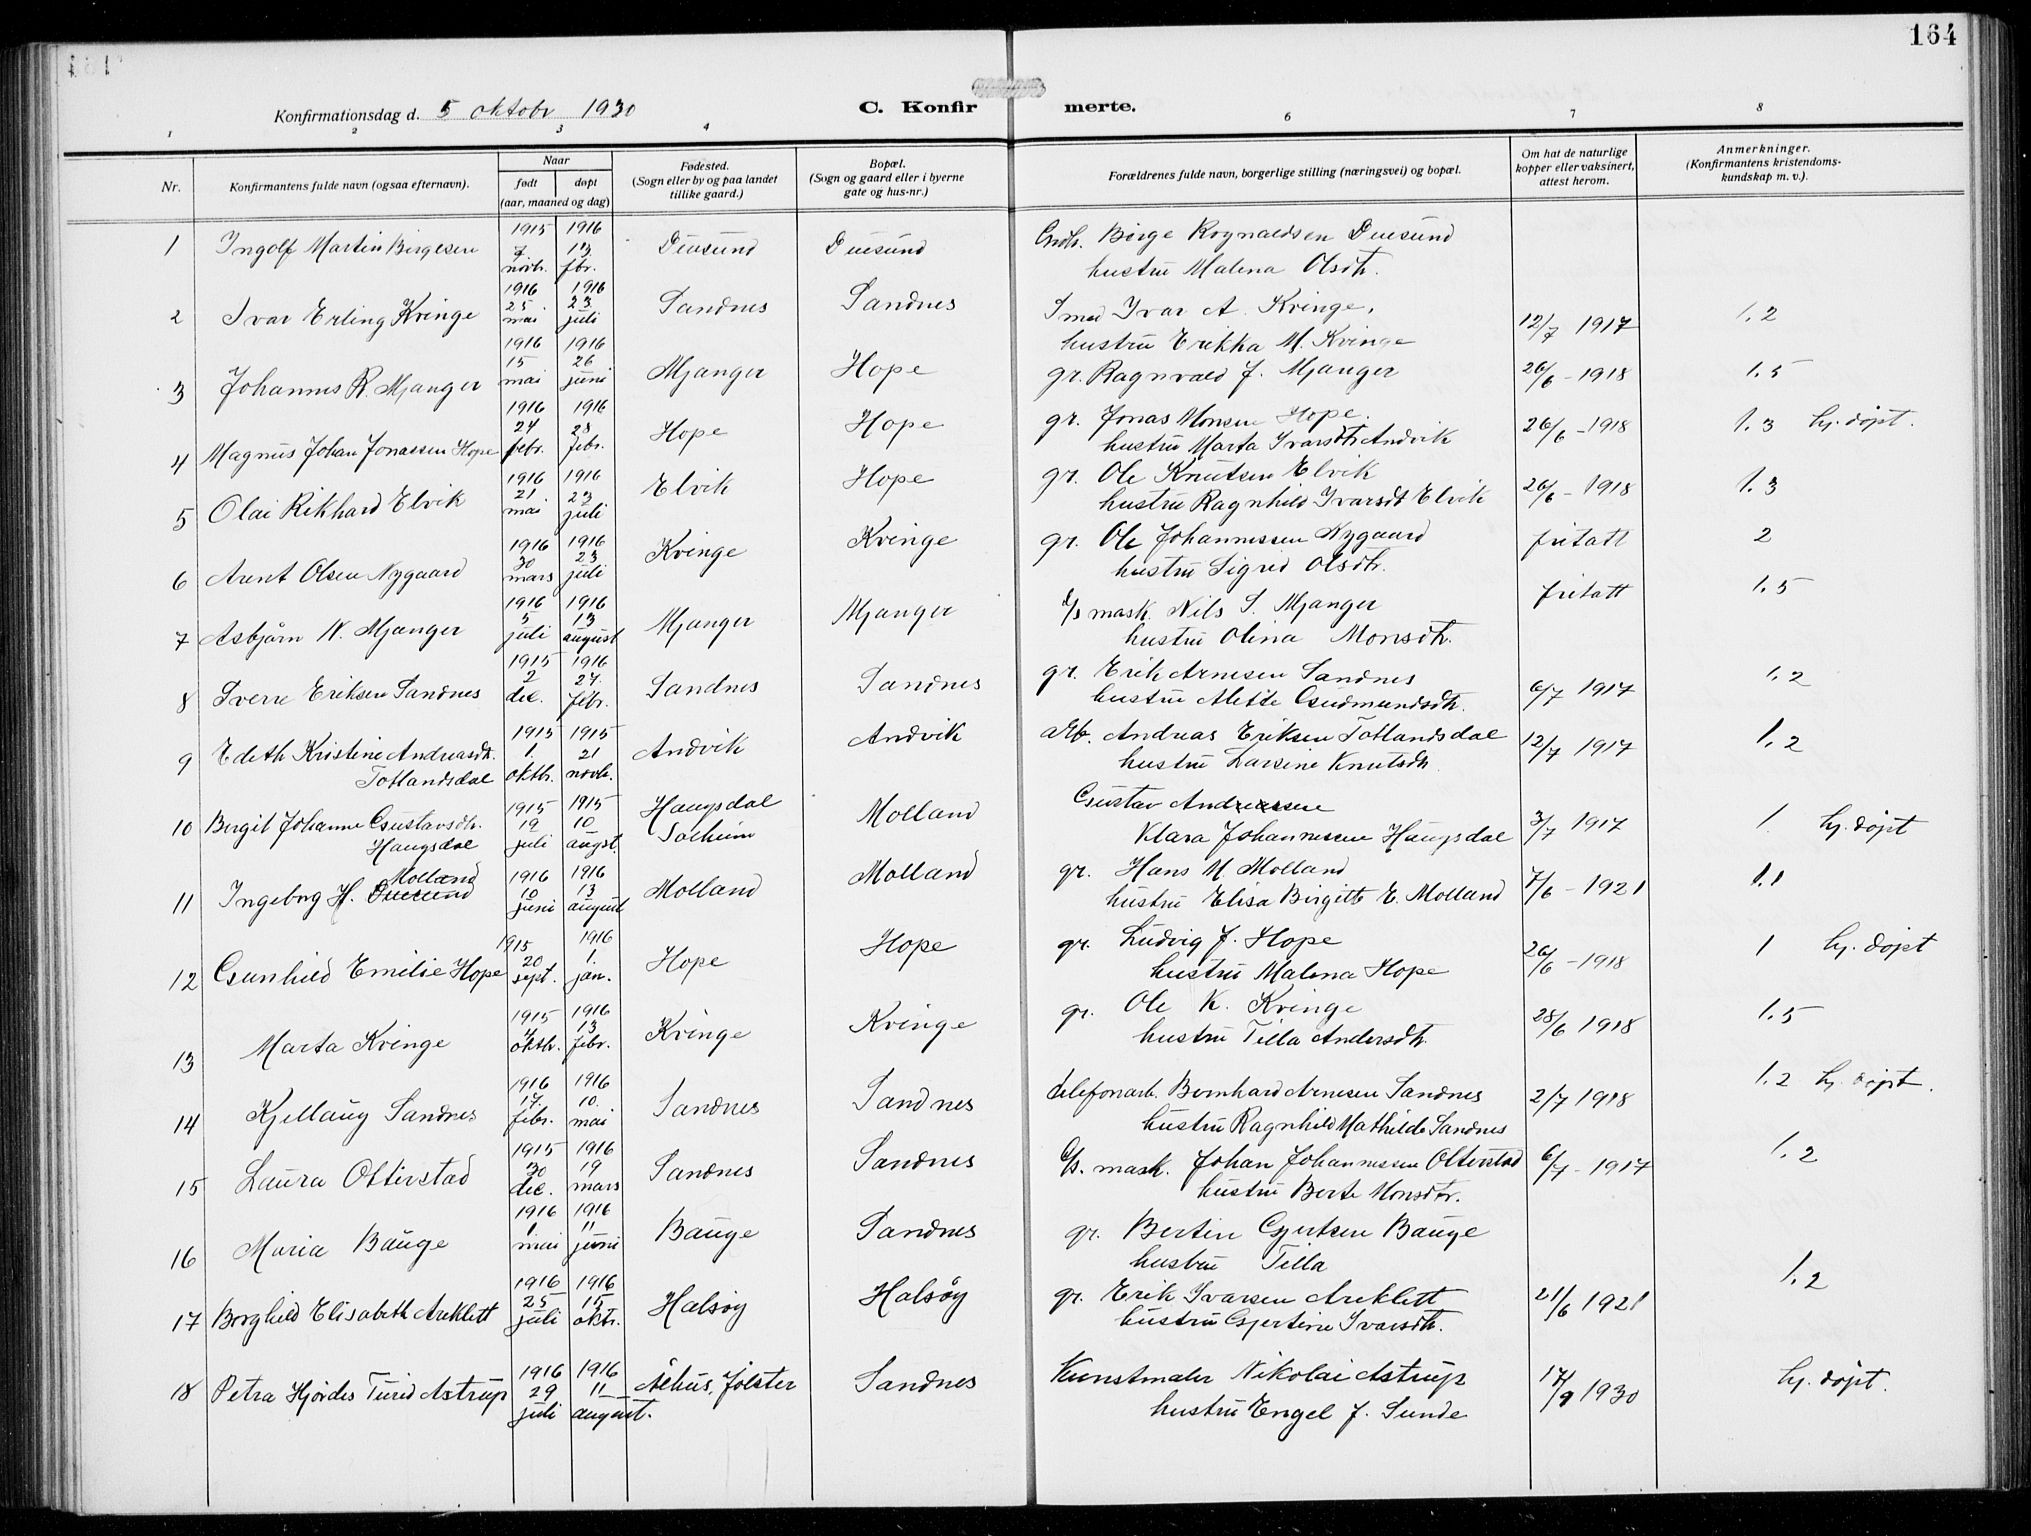 164
Konfirmationsdag d. 5 oktobr 1930
C. Konfirmerte.
1 2 3 4 6 7 8
Nr.
Konfirmantens fulde navn (ogsaa efternavn).
Naar
født døpt
(aar, maaned og dag)
Fødested.
(Sogn eller by og paa landet
tillike gaard.)
Bopæl.
(Sogn og gaard eller i byerne
gate og hus-nr.)
Forældrenes fulde navn, borgerlige stilling (næringsvei) og bopæl.
Om hat de naturlige
kopper eller vaksinert,
attest herom.
Anmerkninger.
(Konfirmantens kristendoms-
kundskap m. v.).
1 Ingolf Martin Birgesen 1915 7 novbr. 1916 13 fbr. Duesund Duesund Grdb. Børge Rognaldsen Duesund
hustru Malena Olsdtr.
2 Ivar Erling Kvinge 1916 25 mai 1916 23 juli Sandnes Sandnes Smed Ivar A. Kvinge, 12/7 1917 1.2
hustru Erikka M. Kvinge
3 Johannes R. Mjanger 1916 15 mai 1916 26 juni Mjanger Hope gr. Ragnvald J. Mjanger 26/6 - 1918 1.5
4 Magnus Johan Jonassen Hope 1916 24 febr. 1916 28 febr. Hope Hope gr. Jonas Monsen Hope. 26/6 - 1918 1.3 hj. døpt.
hustru Marta Ivarsdtr Andvik
5 Olai Rikhard Elvik 1916 21 mai 1916 23 juli Elvik Hope gr. Ole Knutsen Elvik 26/6 - 1918 1.3
hustru Ragnhild Ivarsdt Elvik
6 Arent Olsen Nygaard 1916 30 mars 1916 23 juli Kvinge Kvinge gr. Ole Johannessen Nygaard fritatt 2
hustru Sigrid Olsdtr.
7 Asbjørn N. Mjanger 1916 5 juli 1916 13 august Mjanger Mjanger d/s mask. Nils S. Mjanger fritatt 1.5
hustru Olina Monsdtr.
8 Sverre Eriksen Sandnes 1915 2 dec. 1916 27. febr. Sandnes Sandnes gr. Erik Arnesen Sandnes 6/7 1917 1.2
hustru Mette Gudmundsdtr.
9 Edith Kristine Andreasdtr. 1915 1 oktbr. 1915 21 novbr. Andvik Andvik arb. Andreas Eriksen Totlandsdal 12/7 1917 1.2
Totlandsdal hustru Larsine Knutsdtr
10 Birgit Johanne Gustavsdtr. 1915 19 juli 1915 10 augst. Haugsdal Molland Gustav Andreassen 3/7 1917 1 hj. døpt
Haugsdal Solheim Klara Johannessen Haugsdal
11 Ingeborg H. Duesund Molland 1916 10 juni 1916 13 august Molland Molland gr. Hans M. Molland 7/6 - 1921 1.1
hustru Elisa Birgitte E. Molland
12 Gunhild Emilie Hope 1915 20 sept. 1916 1. jan. Hope Hope gr. Ludvig J. Hope 26/6 - 1918 1 hj. døpt
hustru Malena Hope
13 Marta Kvinge 1915 4 oktbr. 1916 13 febr. Kvinge Kvinge gr. Ole K. Kvinge 28/6 1918 1.5
hustru Tilla Andersdtr.
14 Kjellaug Sandnes 1916 17. febr. 1916 10. mai Sandnes Sandnes telefonarb. Bernhard Arnesen Sandnes 2/7 1918 1.2 hj. døpt.
hustru Ragnhild Mathilde Sandnes
15 Laura Otterstad 1915 30 dec. 1916 19 mars Sandnes Sandnes d/s. mask. Johan Johannessen Otterstad 6/7 - 1917 1.2
hustru Berte Monsdtr.
16 Maria Bauge 1916 1 mai 1916 11 juni Bauge Sandnes gr. Bertin Gjertsen Bauge
hustru Tilla
17 Borghild Elisabeth Areklett 1916 25 juli 1916 15 oktr. Halsøy Halsøy gr. Erik Ivarsen Areklett 21/6 1921 1.2
hustru Gjertine Ivarsdtr.
18 Petra Hjørdis Turid Astrup 1916 29 juli 1916 11 august. Ålhus, Jølster Sandnes Kunstmaler Nikolai Astrup 17/9 1930 hj. døpt.
hustru Engel J. Sunde